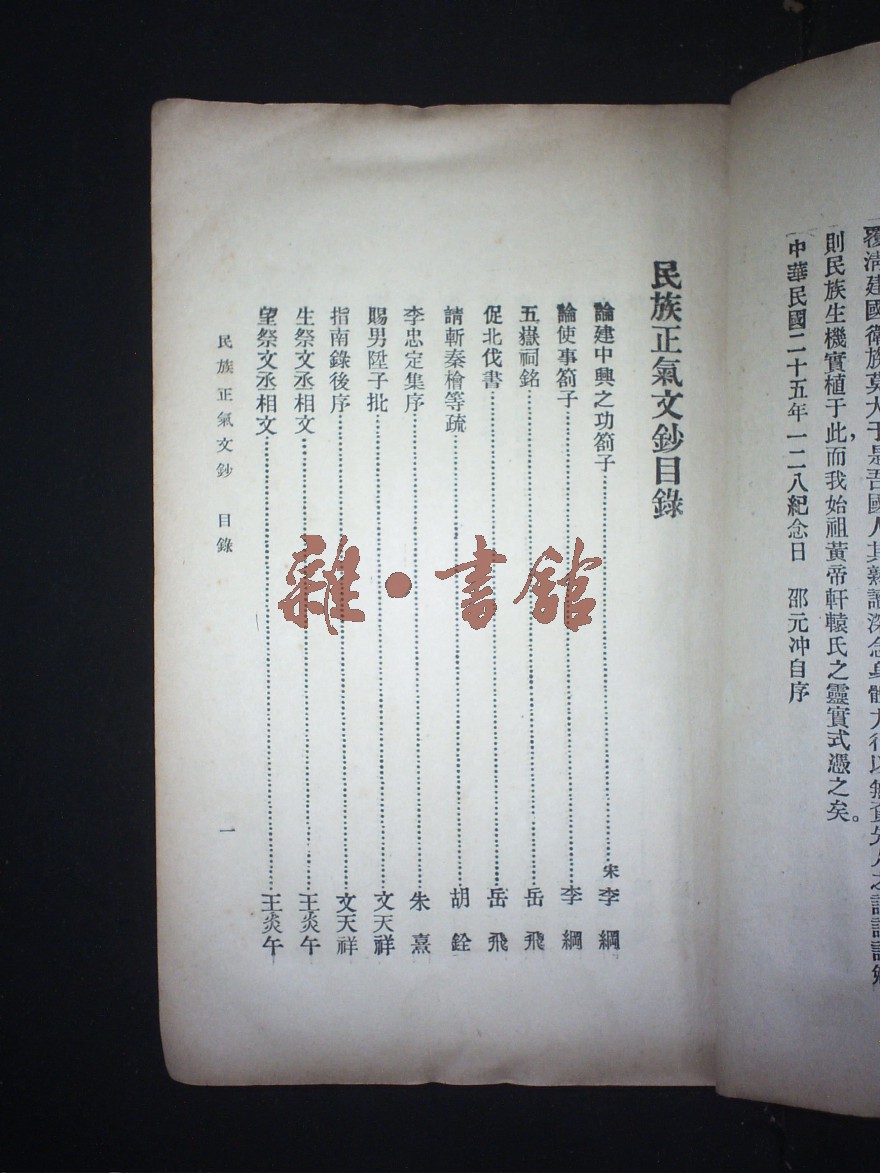 覆清建國衛族莫大于是吾國人其熟讀深念身體力行以無負先人之
則民族生機實植于此,而我始祖黃帝軒轅氏之靈實式憑之矣。
中華民國二十五年一二八紀念日 邵元冲自序
民族正氣文鈔目錄
論建中興之功劄子……宋李綱
論使事劄子……李綱
五嶽祠銘……岳飛
促北伐書……岳飛
請斬秦檜等疏……胡銓
李忠定集序……朱熹
賜男陞子批……文天祥
指南錄後序……文天祥
生祭文丞相文……王炎午
望祭文丞相文……王炎午
民族正氣文鈔 目錄
一
雜·書館